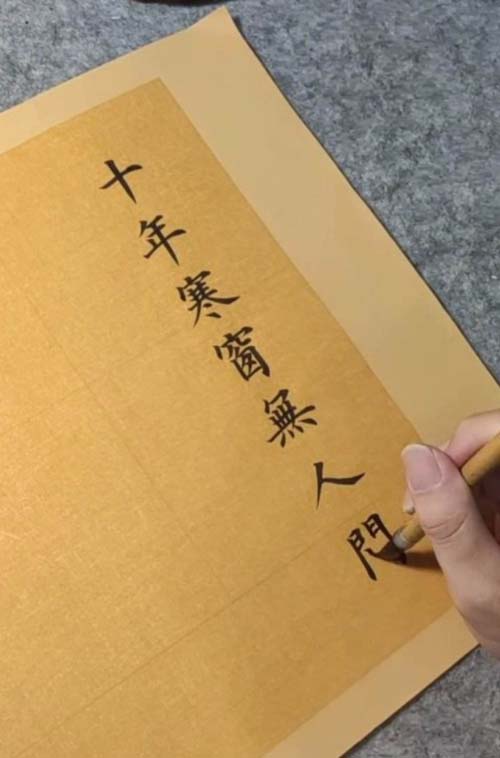 十年寒窗無人門